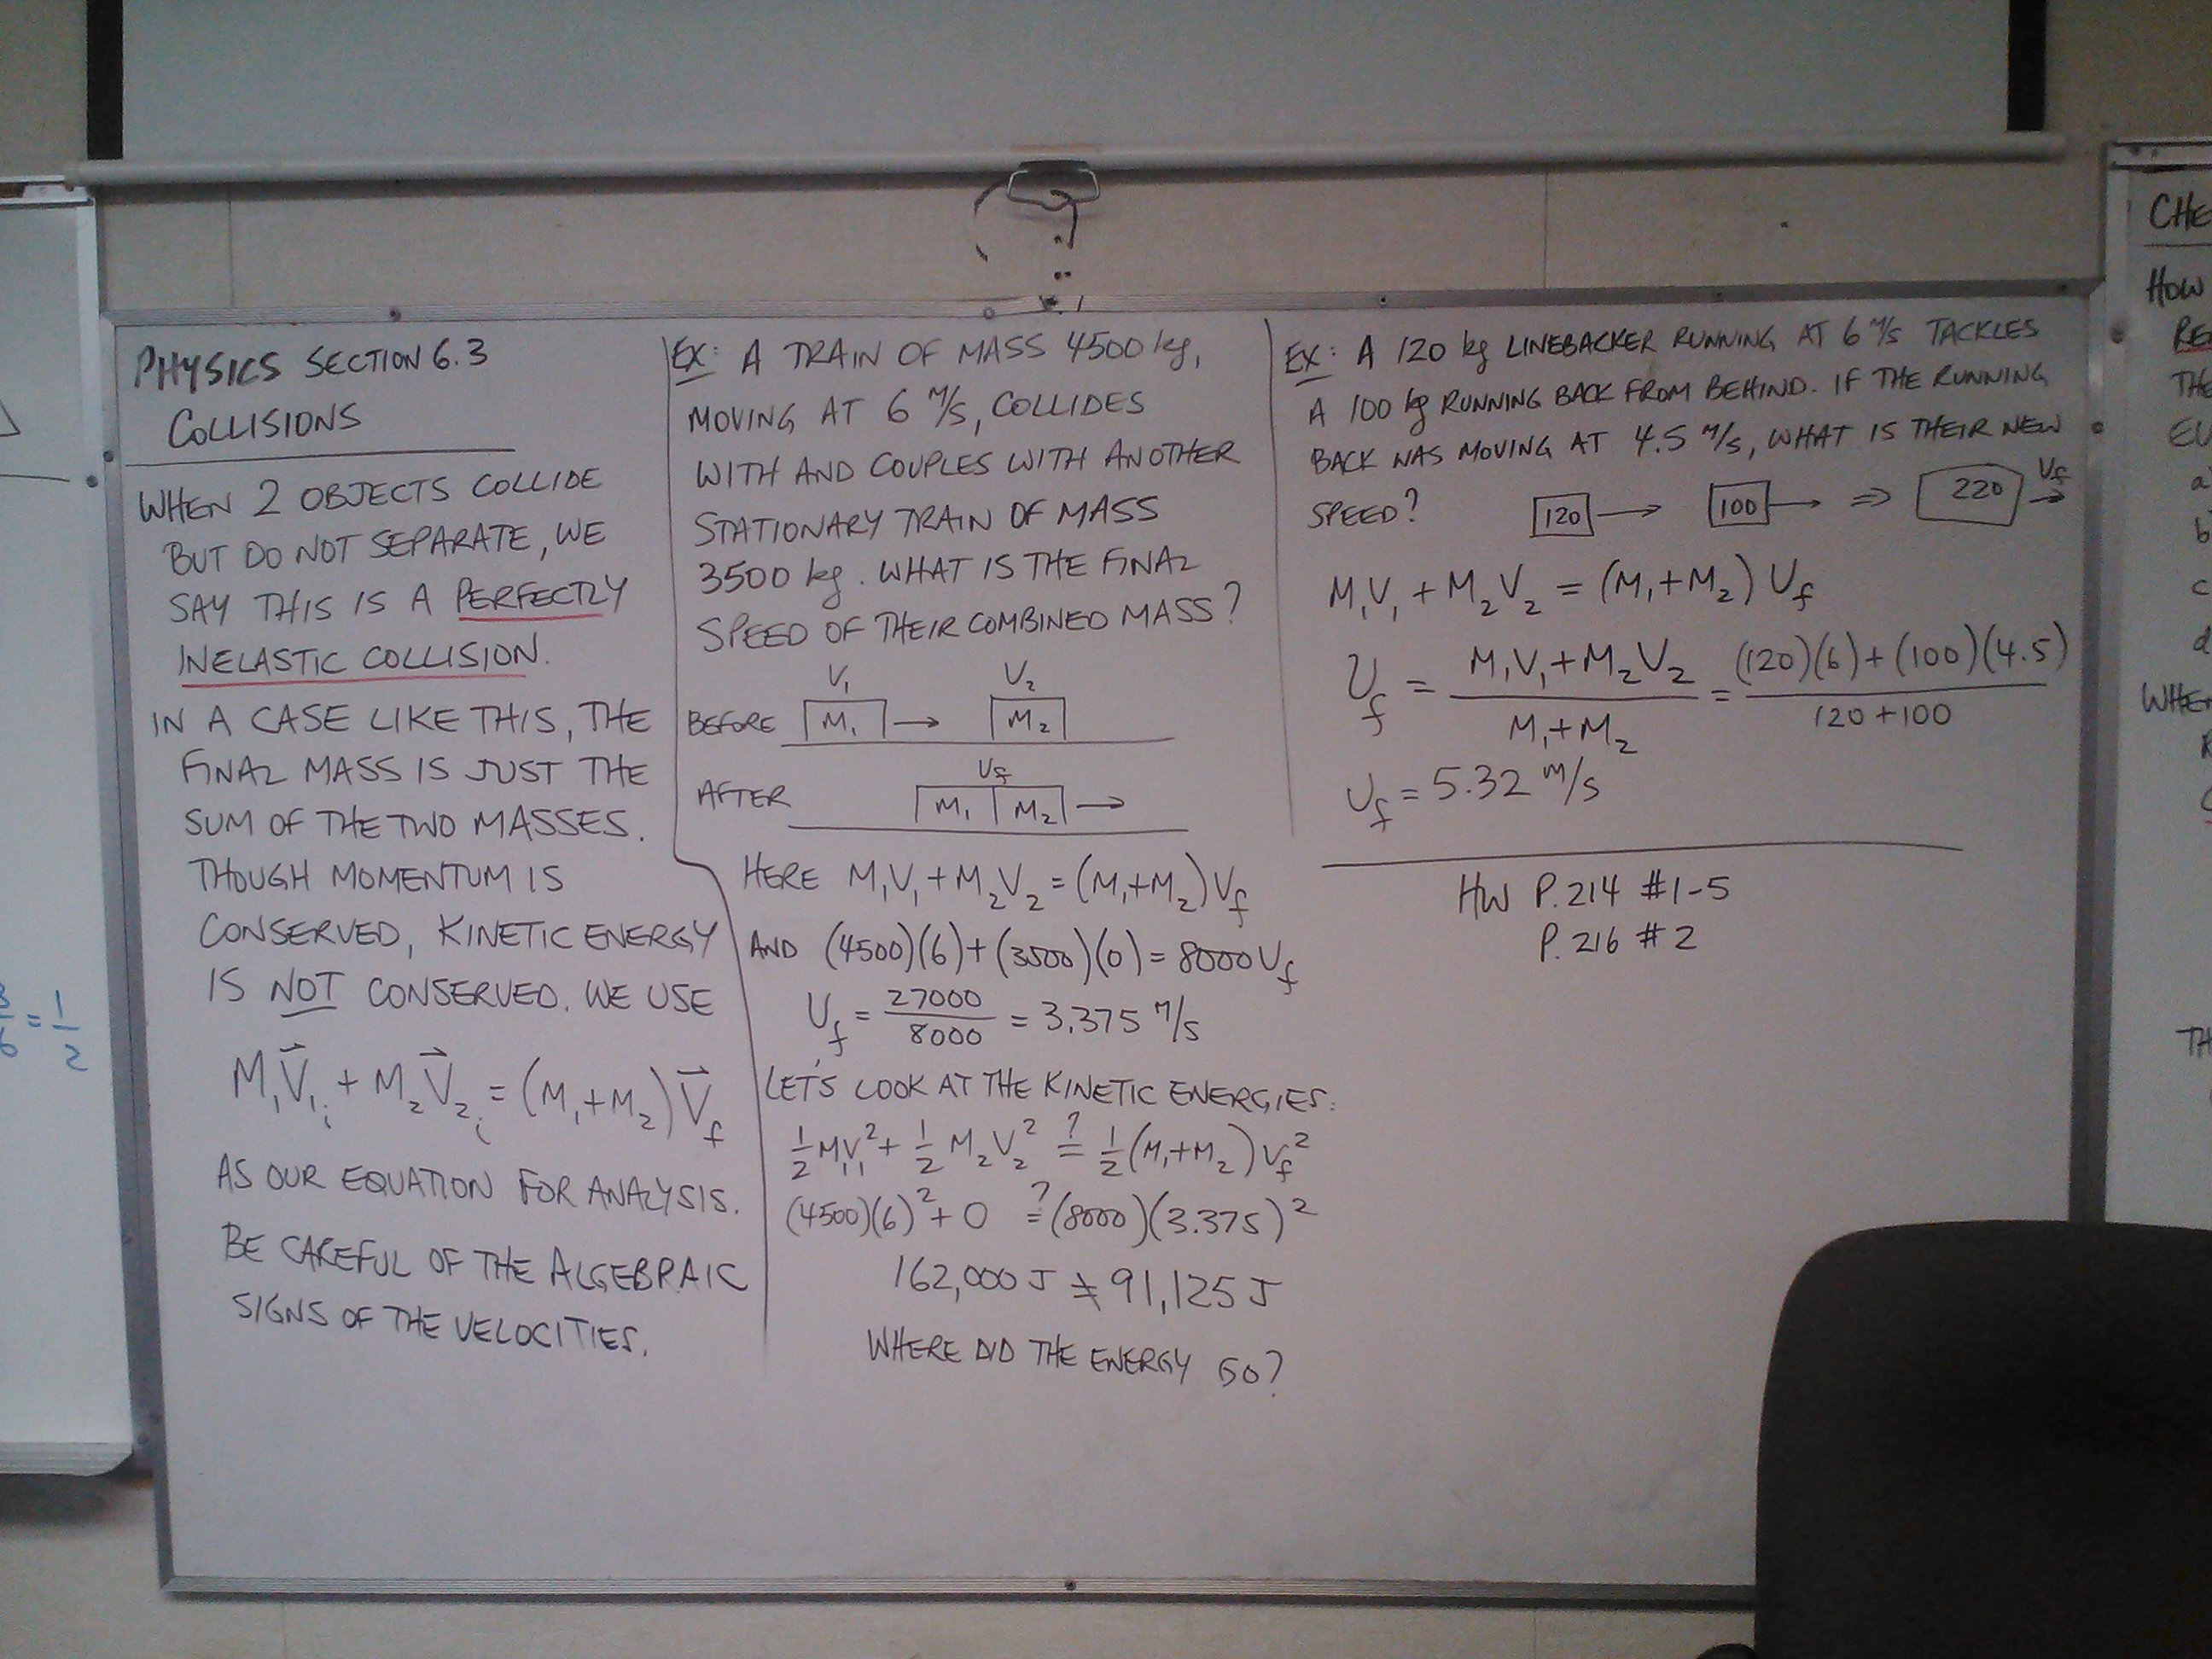 PHYSICS SECTION 6.3
COLLISIONS
WHEN 2 OBJECTS COLLIDE
BUT DO NOT SEPARATE, WE
SAY THIS IS A PERFECTLY
INELASTIC COLLISION.
IN A CASE LIKE THIS, THE
FINAL MASS IS JUST THE
SUM OF THE TWO MASSES.
THOUGH MOMENTUM IS
CONSERVED, KINETIC ENERGY
IS NOT CONSERVED. WE USE
M₁V⃗₁ᵢ + M₂V⃗₂ᵢ = (M₁+M₂)V⃗f
AS OUR EQUATION FOR ANALYSIS.
BE CAREFUL OF THE ALGEBRAIC
SIGNS OF THE VELOCITIES.
EX: A TRAIN OF MASS 4500 kg,
MOVING AT 6 m/s, COLLIDES
WITH AND COUPLES WITH ANOTHER
STATIONARY TRAIN OF MASS
3500 kg. WHAT IS THE FINAL
SPEED OF THEIR COMBINED MASS?
V₁ V₂
BEFORE M₁ → M₂
Vf
AFTER M₁ M₂ →
HERE M₁V₁ + M₂V₂ = (M₁+M₂)Vf
AND (4500)(6) + (3500)(0) = 8000Vf
Vf = 27000/8000 = 3.375 m/s
LET'S LOOK AT THE KINETIC ENERGIES:
½M₁V₁² + ½M₂V₂² ≟ ½(M₁+M₂)Vf²
(4500)(6)² + 0 ≟ (8000)(3.375)²
162,000 J ≠ 91,125 J
WHERE DID THE ENERGY GO?
EX: A 120 kg LINEBACKER RUNNING AT 6 m/s TACKLES
A 100 kg RUNNING BACK FROM BEHIND. IF THE RUNNING
BACK WAS MOVING AT 4.5 m/s, WHAT IS THEIR NEW
SPEED? 120 → 100 → ⇒ 220 Vf →
M₁V₁ + M₂V₂ = (M₁+M₂)Vf
Vf = (M₁V₁ + M₂V₂)/(M₁+M₂) = ((120)(6) + (100)(4.5))/(120+100)
Vf = 5.32 m/s
HW P. 214 #1-5
P. 216 #2
= 1/2
CHE
HOW
THE
EU
a
b
c
d
WHEN
TH